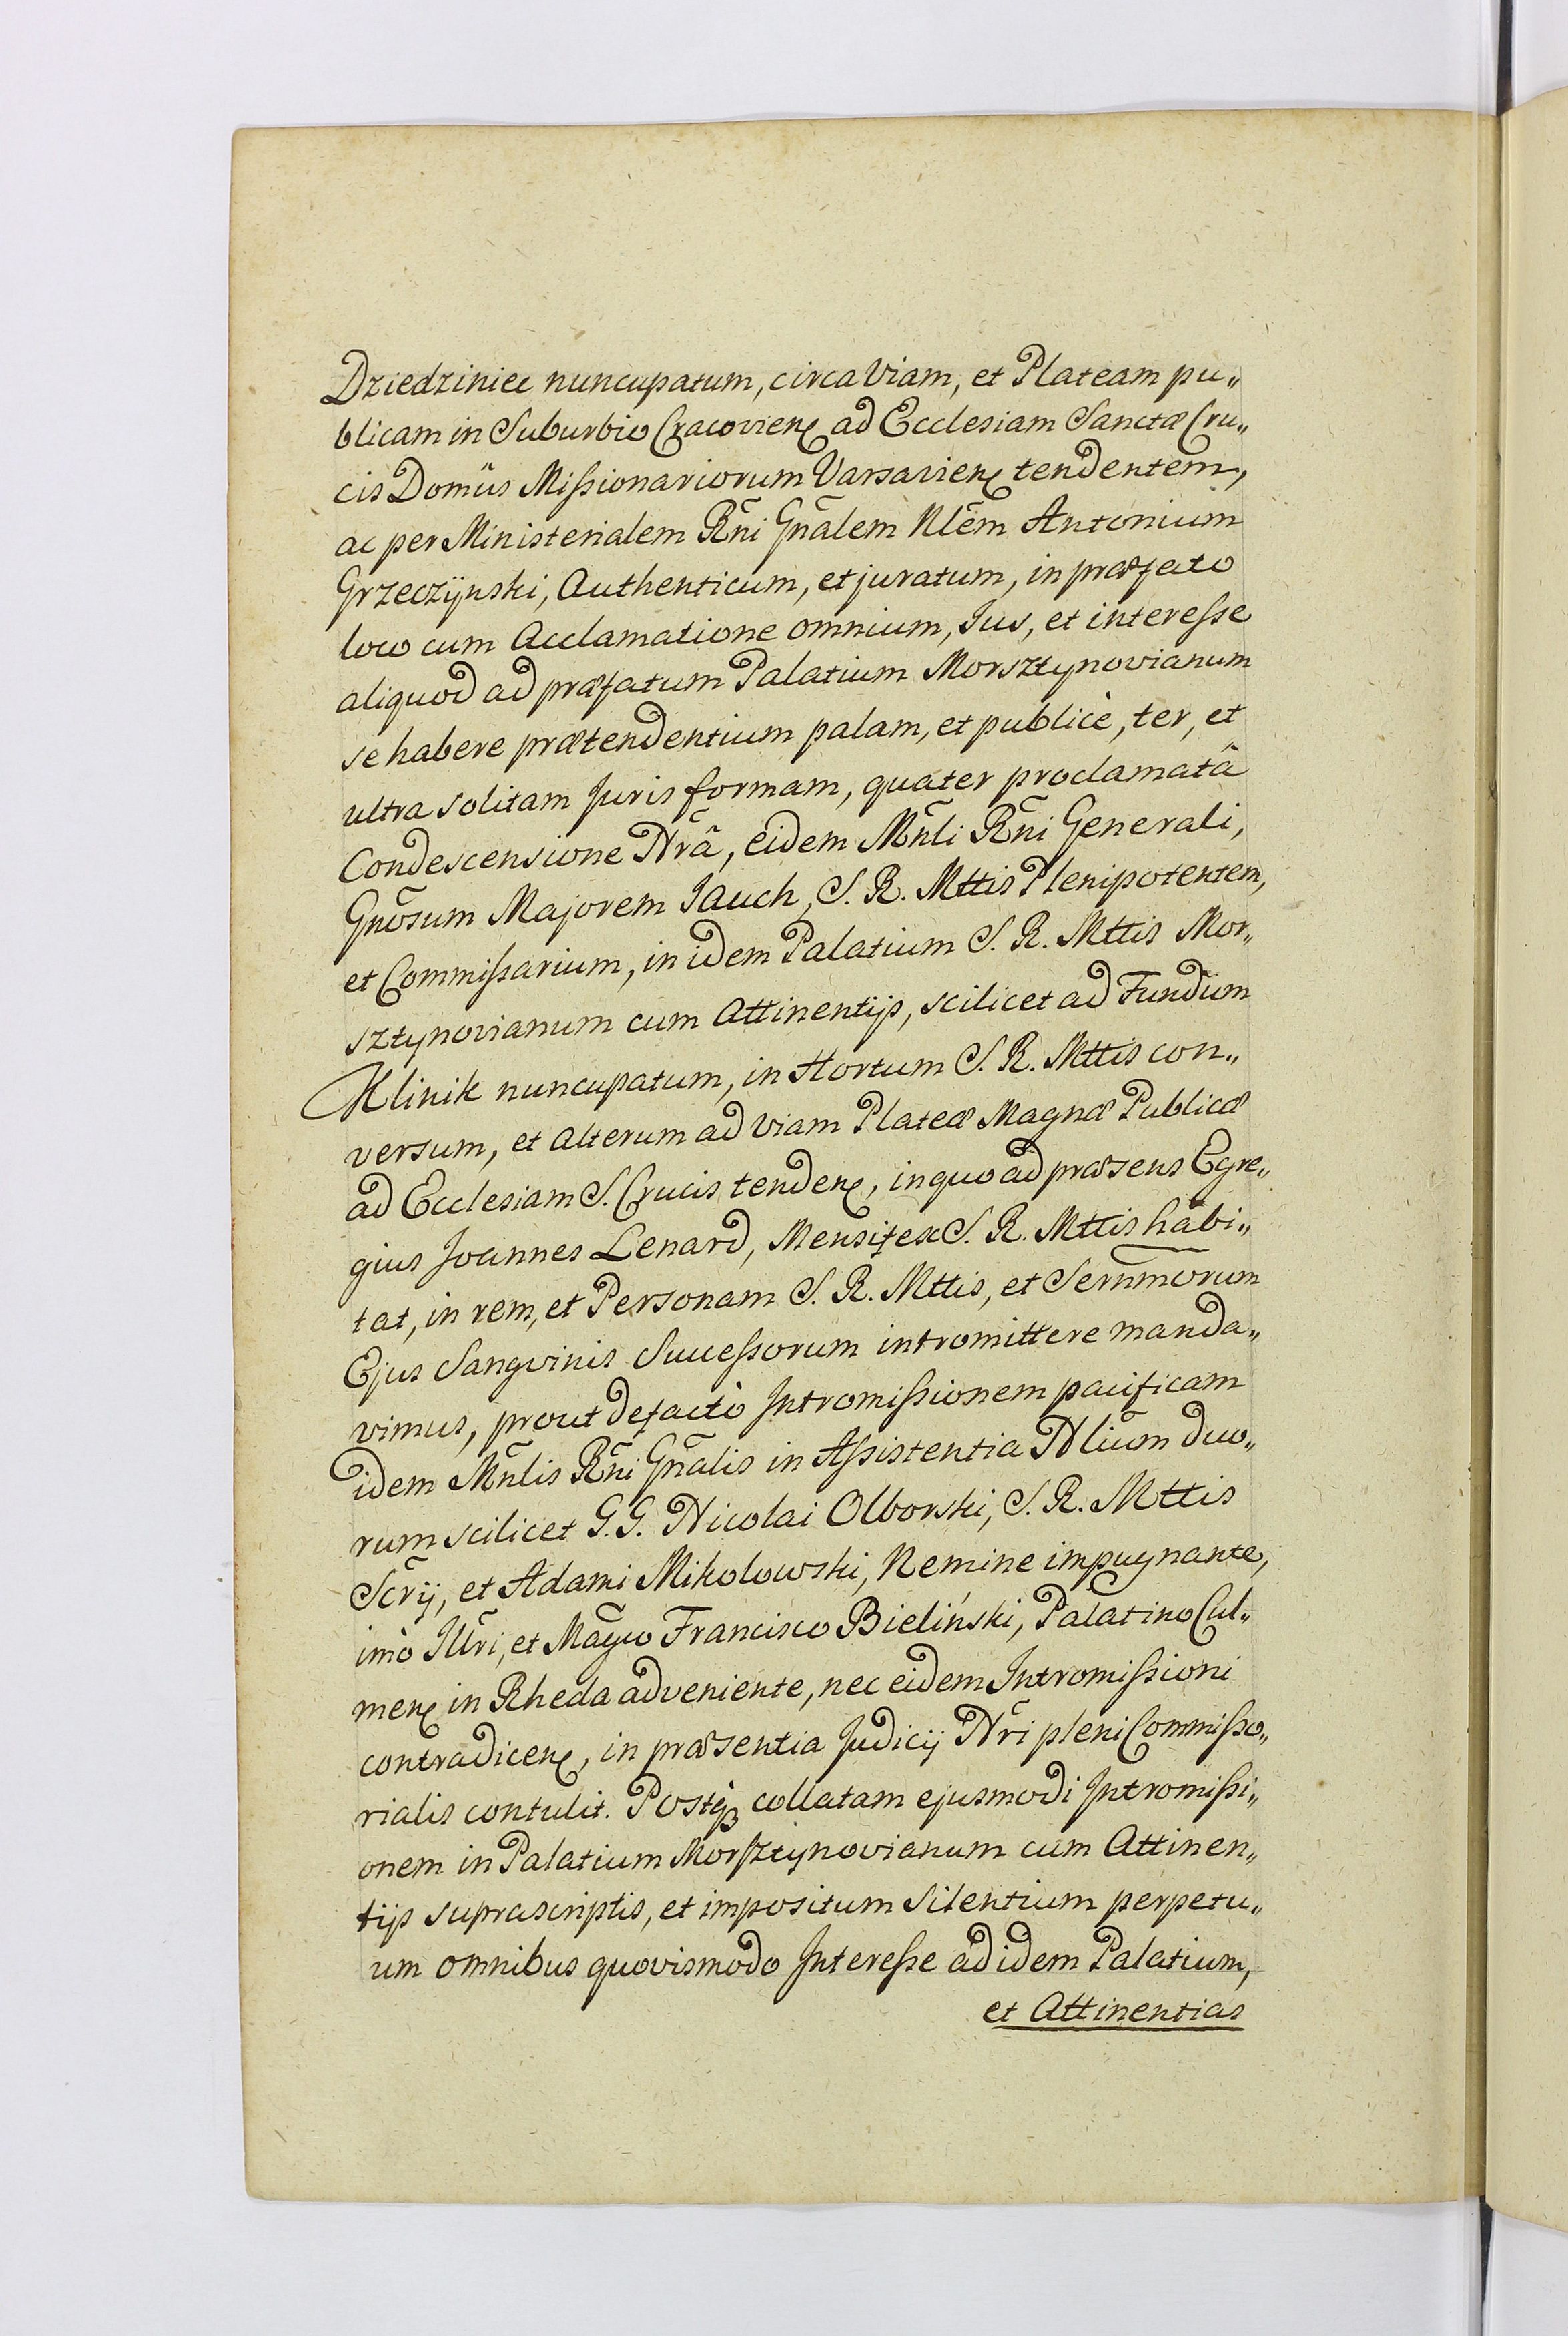 Dziedziniec nuncupatum, circa Viam, et Plateam pu„
blicam in Suburbio Cracovienꝭ ad Ecclesiam Sanctæ Cru„
cis Domûs Mißionariorum Varsavienꝭ tendentem,
ac per Ministerialem Rn̄i Gn̄alem Nlēm Antonium
Grzeczÿnski, Authenticum, et juratum, in præfato
loco cum Acclamatione omnium, Jus, et intereße
aliquod ad præfatum Palatium Morsztynovianum
se habere prætendentium palam, et publicè, ter, et
ultra solitam Juris formam, quater proclamatâ
Condescensione Nr̄â, eidem Mn̄li Rn̄i Generali,
Gnōsum Majorem Jauch, S. R. Mttis Plenipotentem,
et Commißarium, in idem Palatium S. R. Mttis Mor„
sztynovianum cum Attinentijs, scilicet ad Fundum
Klinik nuncupatum, in Hortum S. R. Mttis con„
versum, et alterum ad viam Plateæ Magnæ Publicæ
ad Ecclesiam S. Crucis tendenꝭ, in quo ad præsens Egre„
gius Joannes Lenard, Mensifex S. R. Mttis habi„
tat, in rem, et Personam S. R. Mttis, et Sern̄morum
Ejus Sangvinis Succeßorum intromittere manda„
vimus, prout defactò Intromißionem pacificam
idem Mn̄lis Rn̄i Gn̄alis in Aßistentia Nliūm duo„
rum scilicet G. G. Nicolai Olborski, S. R. Mttis
Scr̄ij, et Adami Mikolowski, Nemine impugnante,
imò Jllr̄i, et Mag̃co Francisco Bieliński, Palatino Cul„
menꝭ in Rheda adveniente, nec eidem Intromißioni
contradicenꝭ, in præsentia Judicij Nr̄i pleni Commißo„
rialis contulit. Postqꝫ collatam ejusmodi Intromißi„
onem in Palatium Morsztynovianum cum Attinen„
tijs suprascriptis, et impositum Silentium perpetu„
um omnibus quovismodo Intereße ad idem Palatium,
et Attinentias